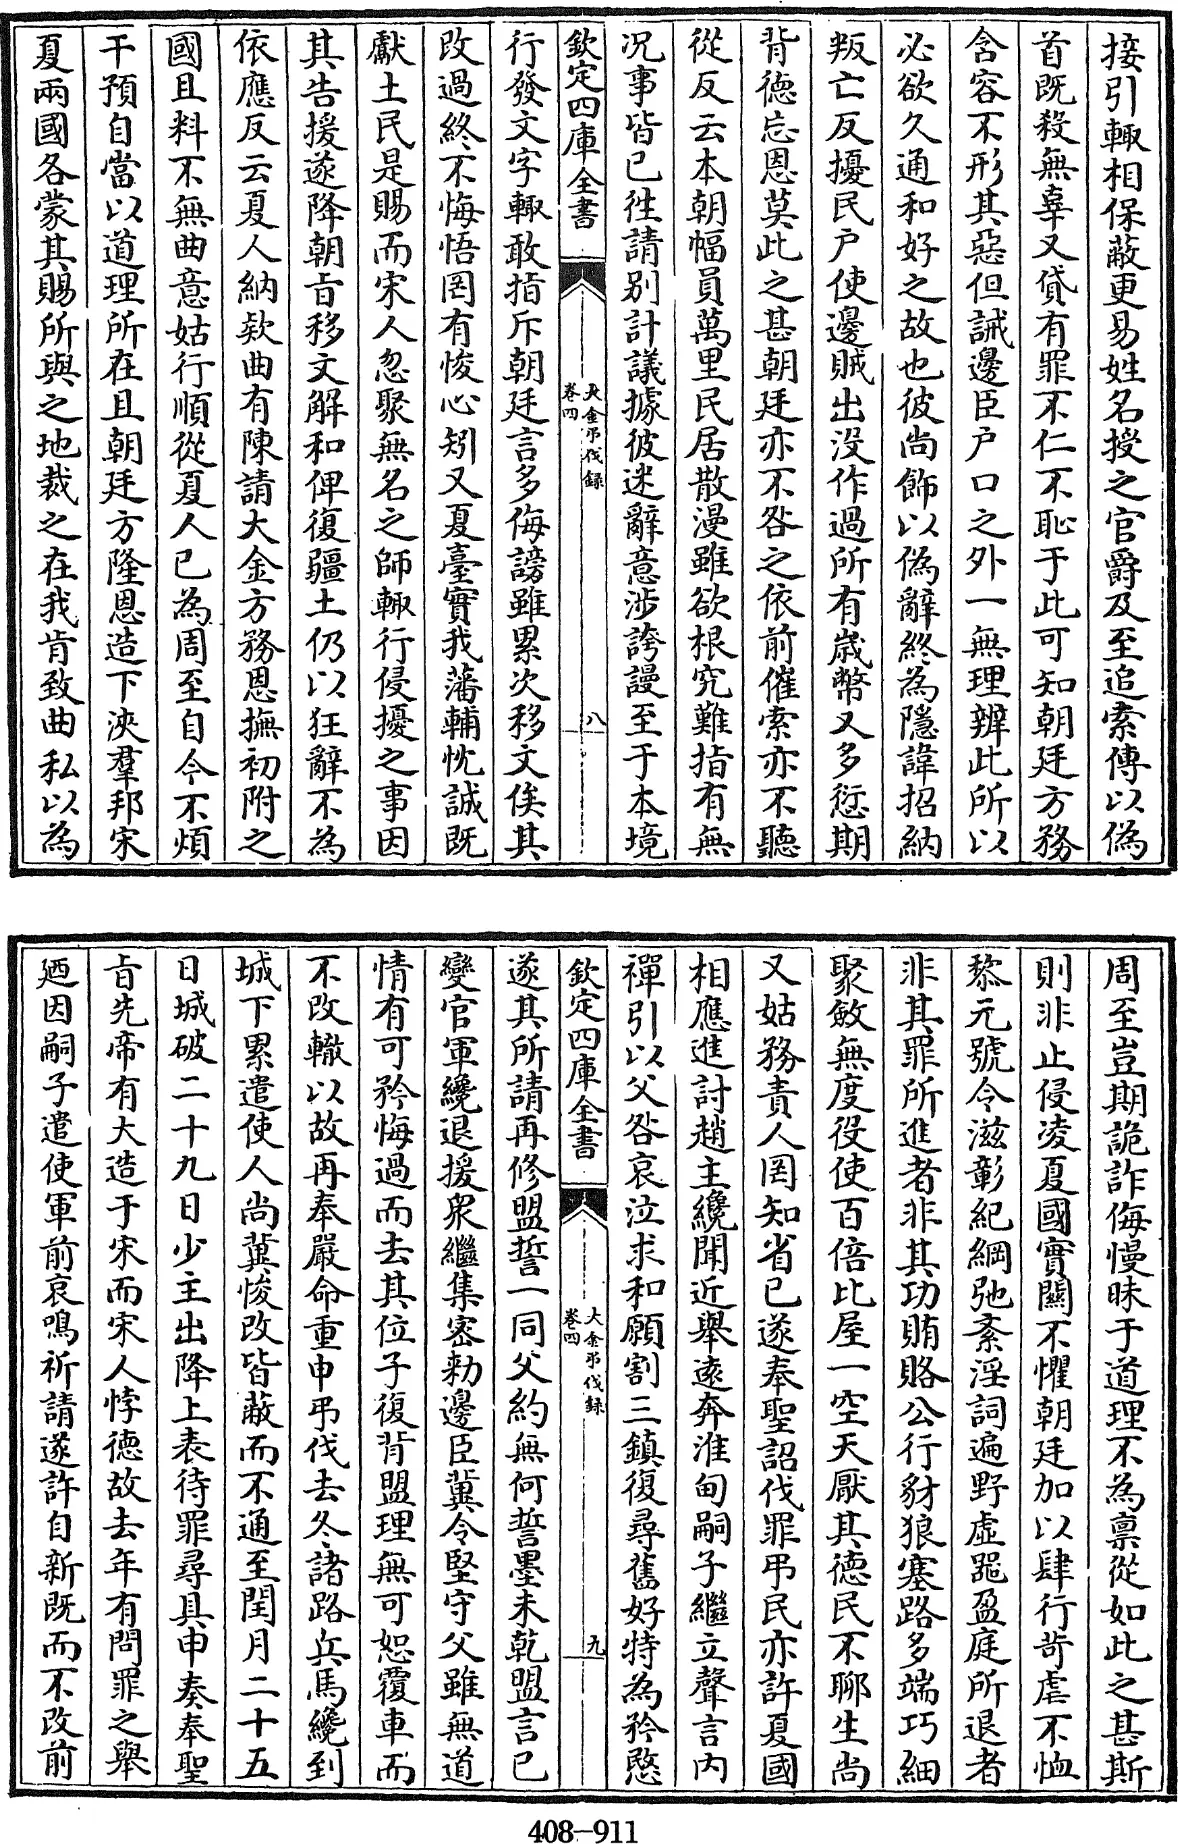 接引輙相保蔽更易姓名授之官爵及至追索傳以偽
首既殺無辜又貸有罪不仁不恥于此可知朝廷方務
含容不形其惡但誡邊臣户口之外一無理辨此所以
必欲久通和好之故也彼尚飾以偽辭終為隱諱招納
叛亡反擾民户使邊賊出没作過所有歲幣又多愆期
背德忘恩莫此之甚朝廷亦不咎之依前催索亦不聽
從反云本朝幅員萬里民居散漫雖欲根究難指有無
况事皆已徃請别計議據彼迷辭意涉誇謾至于本境
欽定四庫全書
大金弔伐録
卷四
八
行發文字輙敢指斥朝廷言多侮謗雖累次移文俟其
改過終不悔悟罔有悛心矧又夏臺實我藩輔忱誠既
獻土民是賜而宋人忽聚無名之師輙行侵擾之事因
其告援遂降朝㫖移文解和俾復疆土仍以狂辭不為
依應反云夏人納欵曲有陳請大金方務恩撫初附之
國且料不無曲意姑行順從夏人已為周至自今不煩
干預自當以道理所在且朝廷方隆恩造下浹羣邦宋
夏兩國各蒙其賜所與之地裁之在我肯致曲私以為
周至豈期詭詐侮慢昧于道理不為禀從如此之甚斯
則非止侵凌夏國實闗不懼朝廷加以肆行苛虐不恤
黎元號令滋彰紀綱弛紊淫詞遍野虚器盈庭所退者
非其罪所進者非其功賄賂公行豺狼塞路多端巧細
聚斂無度役使百倍比屋一空天厭其德民不聊生尚
又姑務責人罔知省已遂奉聖詔伐罪弔民亦許夏國
相應進討趙主纔聞近舉逺奔淮甸嗣子繼立聲言内
禪引以父咎哀泣求和願割三鎮復尋舊好特為矜愍
欽定四庫全書
大金弔伐録
卷四
九
遂其所請再修盟誓一同父約無何誓墨未乾盟言已
變官軍纔退援衆繼集宻勅邊臣冀令堅守父雖無道
情有可矜悔過而去其位子復背盟理無可恕覆車而
不改轍以故再奉嚴命重申弔伐去冬諸路兵馬纔到
城下累遣使人尚冀悛改皆蔽而不通至閏月二十五
日城破二十九日少主出降上表待罪尋具申奏奉聖
㫖先帝有大造于宋而宋人悖德故去年有問罪之舉
廼因嗣子遣使軍前哀鳴祈請遂許自新既而不改前
408-911